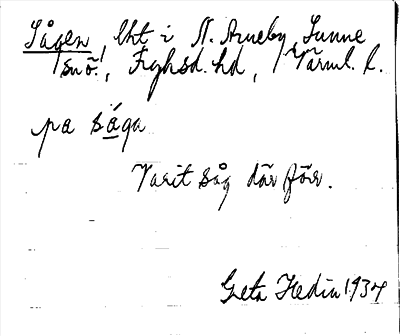 Sågen, lht i N. Arneby, Sunne
snö., Fryksd. hd, Värml. l.
på såga
Varit såg där förr.
Greta Hedin 1934